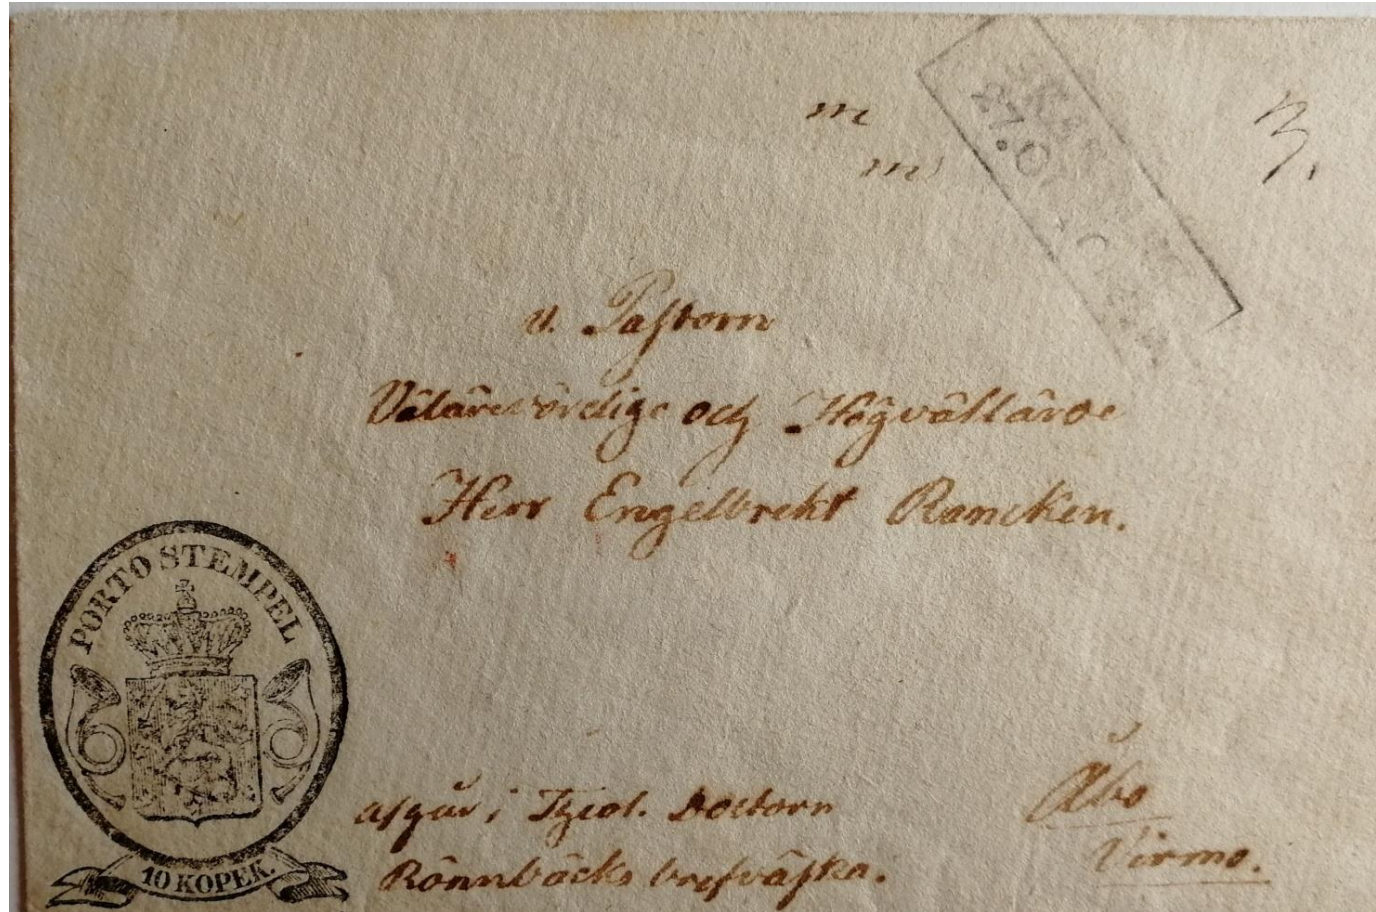 m
m
3.
27.O
v. Pastorn
Välärevördige och Högvällärde
Herr Engelbrekt Rancken.
PORTO STEMPEL
10 KOPEK.
Afgår i Theol. Doctorn
Rönnbäcks brefväska.
Åbo
Virmo.